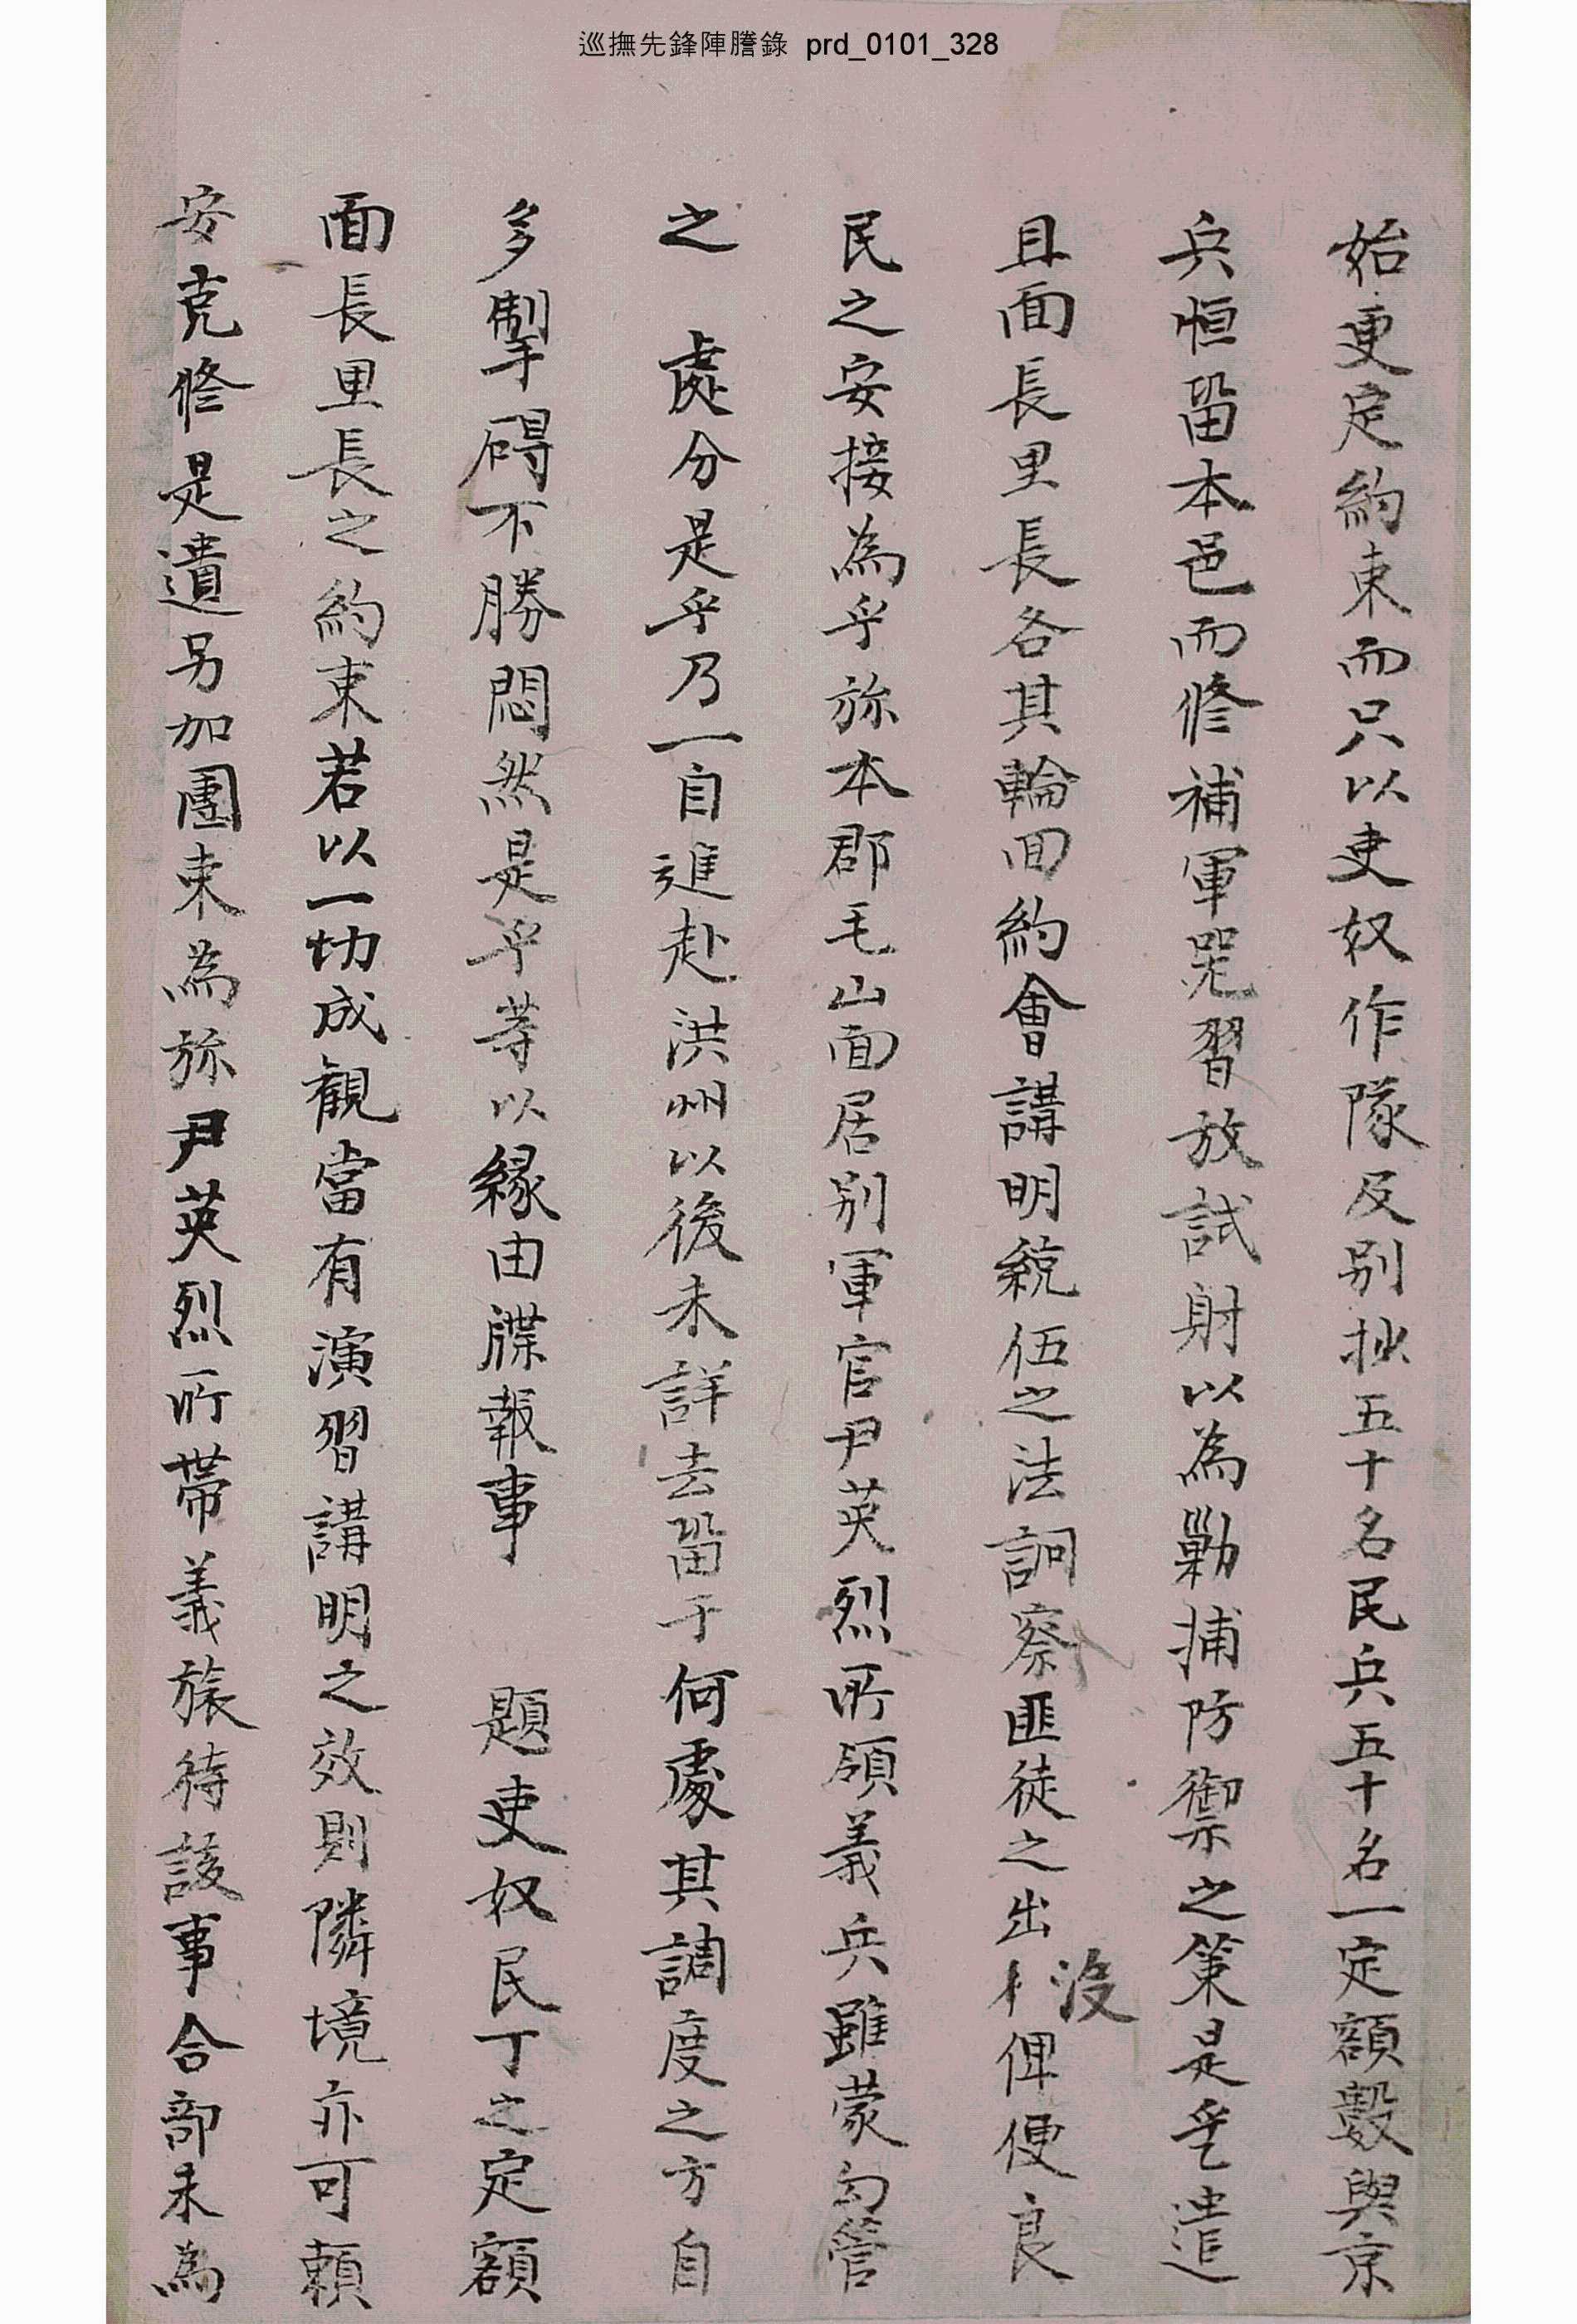 巡撫先鋒陣謄錄 prd_0101_328
始更定約束而只以吏奴作隊及別抄五十名民兵五十名一定額數與京
兵恒留本邑而修補軍器習放試射以為勦捕防禦之策是乎遣
且面長里長各其輪回約會講明統伍之法詗察匪徒之出沒俾便良
民之安接為乎旀本郡毛山面居別軍官尹英烈所領義兵雖蒙句管
之 處分是乎乃一自進赴洪州以後未詳去留于何處其調度之方自
多掣碍不勝悶然是乎等以緣由牒報事 題吏奴民丁之定額
面長里長之約束若以一切成觀當有演習講明之效則隣境亦可賴
安克修是遣另加團束為旀尹英烈所帶義旅待該事合部未為